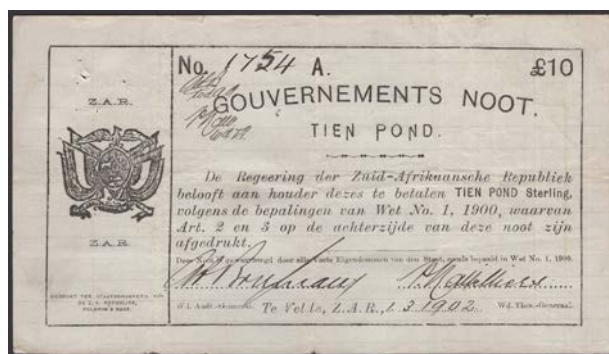 No. 1754 A. £10
GOUVERNEMENTS NOOT.
TIEN POND.
De Regeering der Zuid-Afrikaansche Republiek
belooft aan houder dezes te betalen TIEN POND Sterling,
volgens de bepalingen van Wet No. 1, 1900, waarvan
Art. 2 en 5 op de achterzijde van deze noot zijn
afgedrukt.
Deze Noot is gewaarborgd door alle Vaste Eigendommen van den Staat, zooals bepaald in Wet No. 1, 1900.
Wd. Audt.-Generaal. Te Velde, Z.A.R., 1.3.1902. Wd. Thes.-Generaal.
Z.A.R.
Z.A.R.